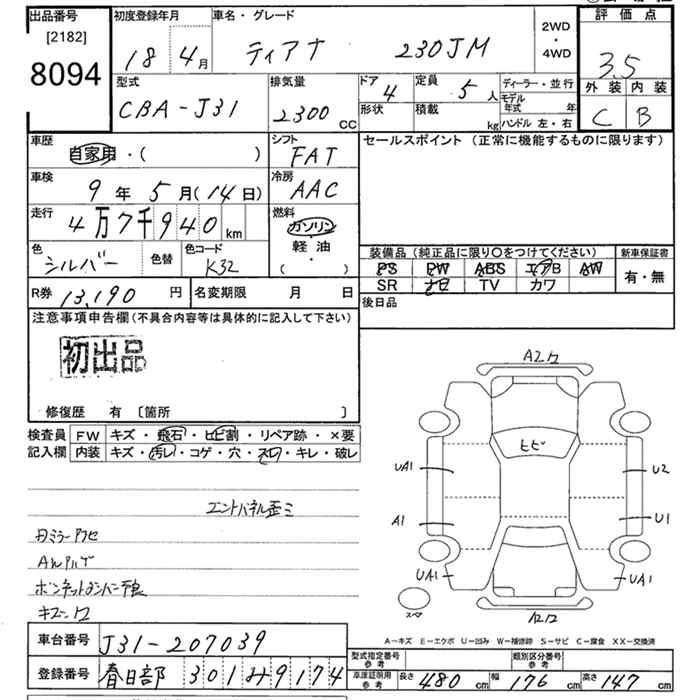 出品番号 初度登録年月 車名・グレード 評価点
[2182] 18 年 4月 ティアナ 230JM 2WD・4WD 3.5
8094 型式 排気量 ドア 定員 ディーラー・並行 外装 内装
CBA-J31 2300cc 4 5人 モデル年式 年 C B
形状 積載 kg ハンドル 左・右
車歴 シフト セールスポイント (正常に機能するものに限ります)
自家用・( ) FAT
車検 冷房
9年5月(14日) AAC
走行 燃料
4万7千940km ガソリン・軽油・( )
色 色替 色コード 装備品 (純正品に限り○をつけてください) 新車保証書
シルバー K32 PS PW ABS エアB AW 有・無
SR ナビ TV カワ
R券 13,190円 名変期限 月 日 後日品
注意事項申告欄 (不具合内容等は具体的に記入して下さい)
初出品
修復歴 有 [箇所 ]
検査員 FW キズ・飛石・ヒビ割・リペア跡・×要
記入欄 内装 キズ・汚レ・コゲ・穴・スレ・キレ・破レ
A2
ヒビ
UA1 U2
A1 U1
UA1 UA1
スペア
エントパネル歪ミ
A-キズ E-エクボ U-凹み W-補修跡 S-サビ C-腐食 XX-交換済
車台番号 J31-207039
登録番号 春日部 301 み 9174
型式指定番号 参考 類別区分番号 参考
車庫証明用 参考 長さ 480cm 幅 176cm 高さ 147cm